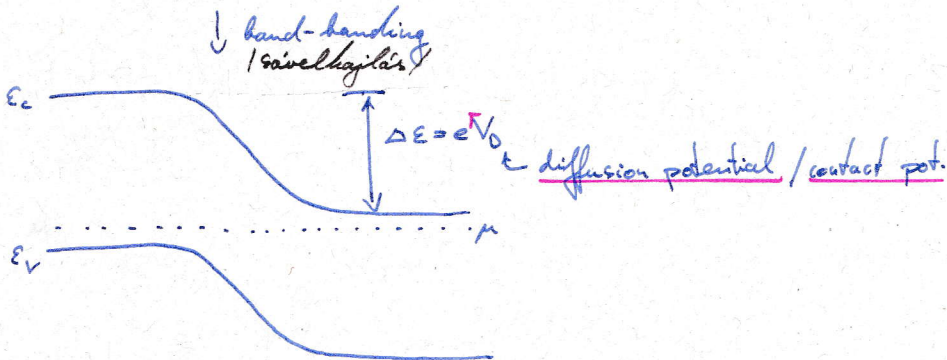 ↓ band-banding
/sávelhajlás/
εc
Δε = eV_D
← diffusion potential / contact pot.
μ
εv